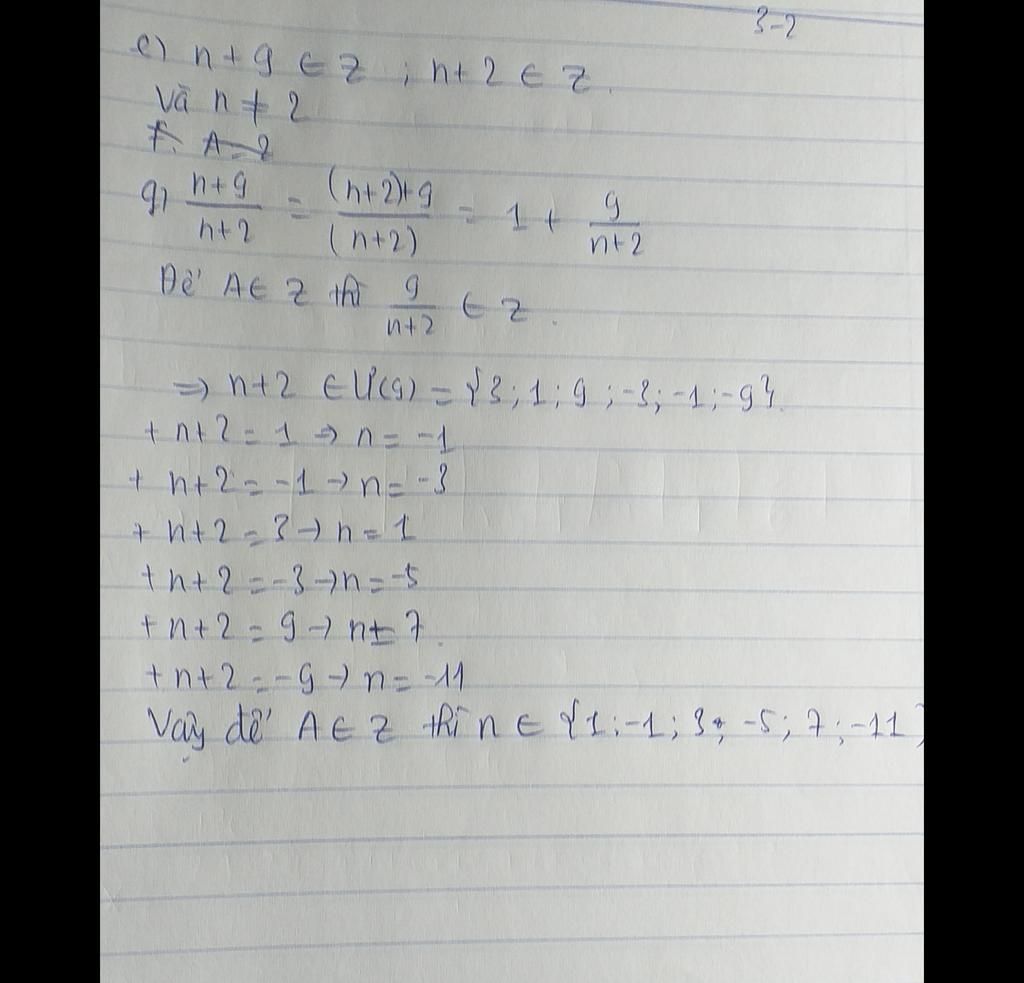 3-2
e) n + 9 ∈ Z ; n + 2 ∈ Z.
Và n ≠ 2
f. A = 2
g) \frac{n+9}{n+2} = \frac{(n+2)+9}{(n+2)} = 1 + \frac{9}{n+2}
Để A ∈ Z thì \frac{9}{n+2} ∈ Z.
⇒ n+2 ∈ Ư(9) = {3; 1; 9; -3; -1; -9}.
+ n+2 = 1 → n = -1
+ n+2 = -1 → n = -3
+ n+2 = 3 → n = 1
+ n+2 = -3 → n = -5
+ n+2 = 9 → n = 7.
+ n+2 = -9 → n = -11
Vậy để A ∈ Z thì n ∈ {1; -1; 3; -5; 7; -11}